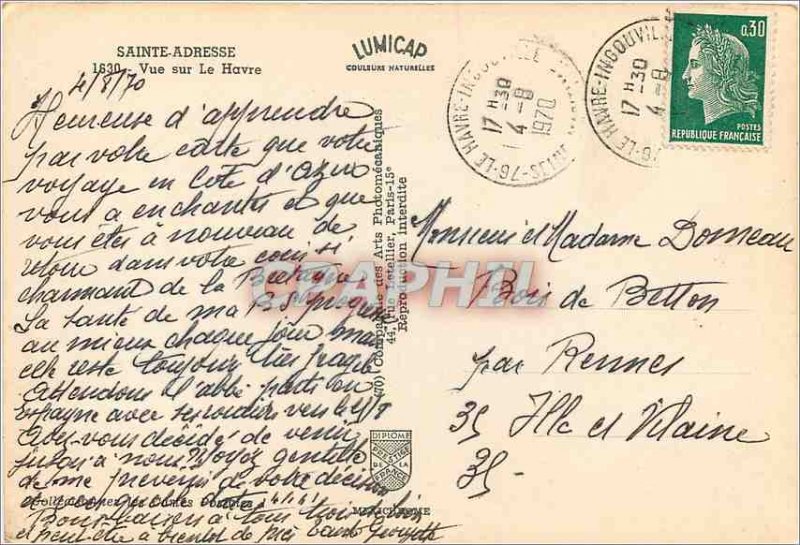 SAINTE-ADRESSE
1630 - Vue sur Le Havre
LUMICAP
COULEURS NATURELLES
4/8/70
Heureuse d'apprendre
par votre carte que votre
voyage en Cote d'Azur
vous a enchantés et que
vous êtes à nouveau de
retour dans votre coin si
charmant de la Bretagne
La santé de ma
au mieux chaque jour mais
elle reste toujours très fragile
Attendons l'abbé parti en
Espagne avec ses
Avez-vous décidé de venir
jusqu'à nous Soyez gentille
de me prévenir de votre décision
et
Bons baisers à tous trois
et peut-être à bientôt
Collectionnez les Cartes Postales
(70) Compagnie des Arts Photomécaniques
44, rue Letellier, Paris-15e
Reproduction interdite
DIPLOME
PRESTIGE
DE LA
FRANCE
MEXICHROME
76-LE HAVRE-INGOUVILLE SEINE
17 H 30
4 -8
1970
76-LE HAVRE-INGOUVIL
17 H 30
4 -8
0,30
POSTES
REPUBLIQUE FRANÇAISE
Monsieur et Madame Domeau
Bois de Betton
par Rennes
35 Ille et Vilaine
35-
CPAPHIL